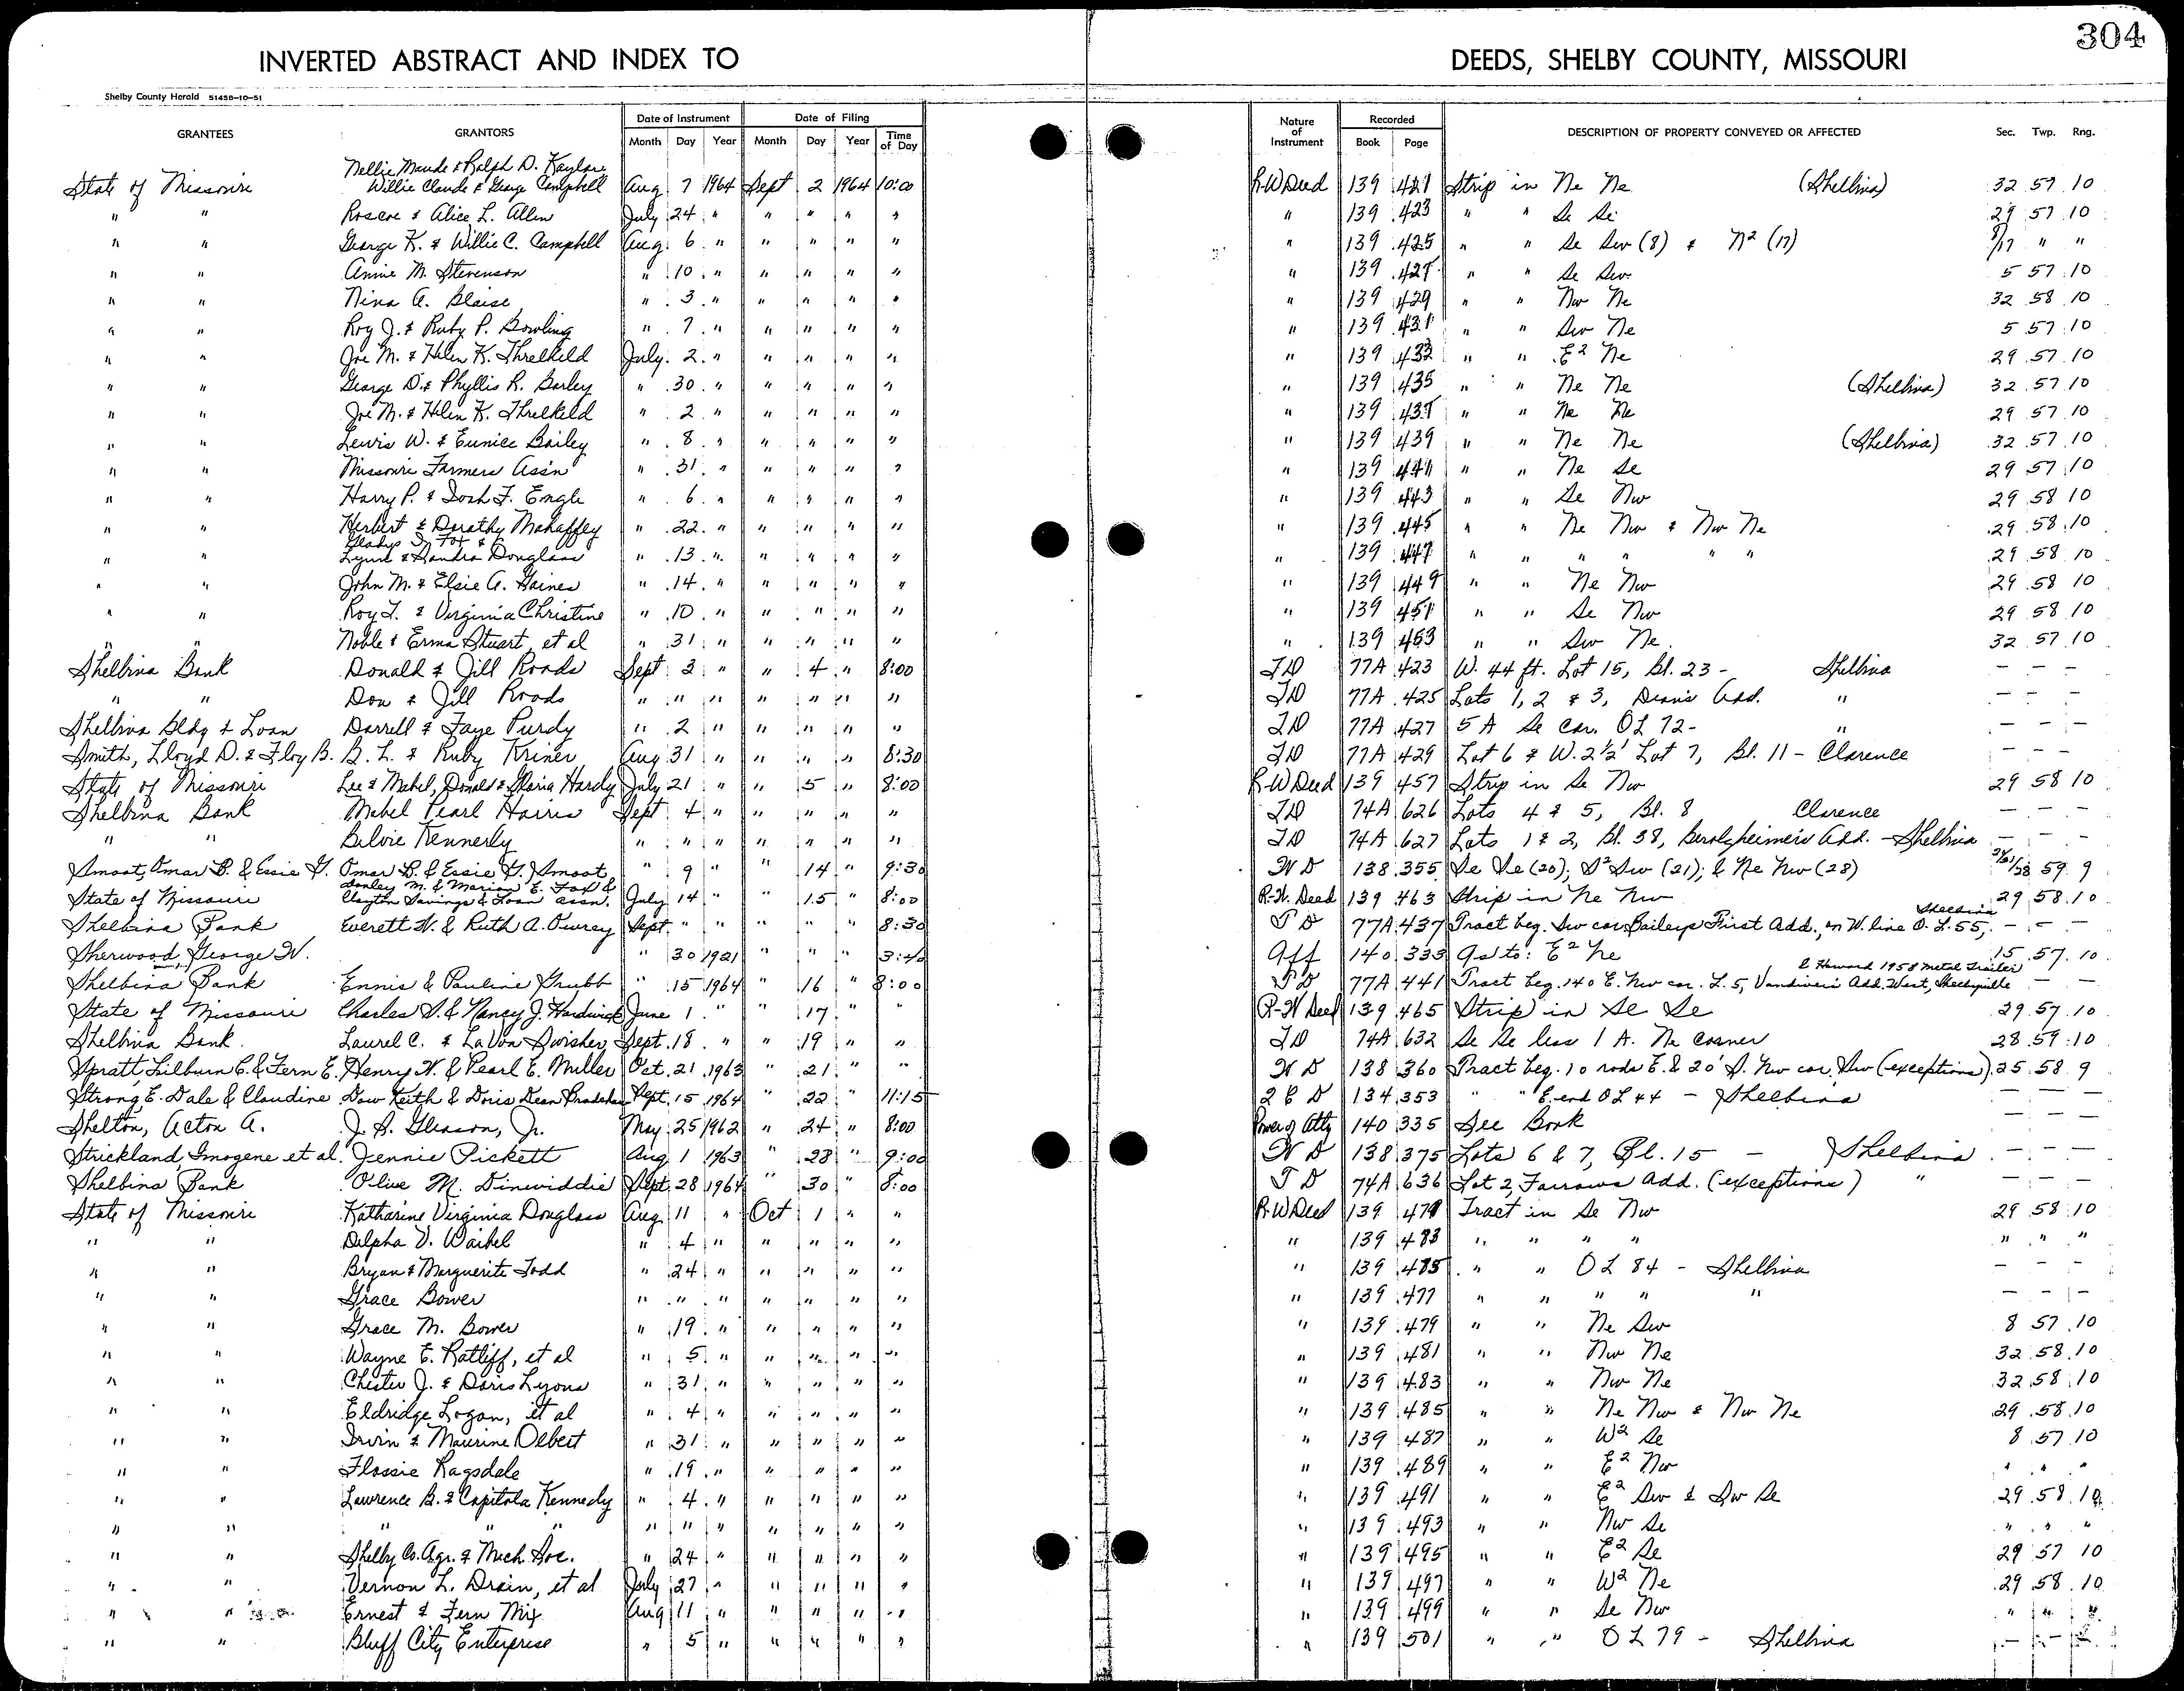 304
INVERTED ABSTRACT AND INDEX TO DEEDS, SHELBY COUNTY, MISSOURI
Shelby County Herald 51458-10-51
GRANTEES GRANTORS Date of Instrument Date of Filing Nature of Instrument Recorded DESCRIPTION OF PROPERTY CONVEYED OR AFFECTED Sec. Twp. Rng.
Month Day Year Month Day Year Time of Day Book Page
Nellie Maude & Ralph D. Kaylor
State of Missouri Willie Claude & George Campbell Aug 7 1964 Sept 2 1964 10:00 R-W Deed 139 421 Strip in Ne Ne (Shelbina) 32 57 10
" " Roscoe & Alice L. Allen July 24 " " " " " " 139 423 " " Se Se 29 57 10
" " George K. & Willie C. Campbell Aug. 6 " " " " " " 139 425 " " Se Sw (8) & N2 (17) 8/17 " "
" " Annie M. Stevenson " 10 " " " " " " 139 427 " " Se Sw 5 57 10
" " Nina A. Blaise " 3 " " " " " " 139 429 " " Nw Ne 32 58 10
" " Roy J. & Ruby P. Bowling " 7 " " " " " " 139 431 " " Sw Ne 5 57 10
" " Joe M. & Helen K. Threlkeld July 2 " " " " " " 139 433 " " E2 Ne 29 57 10
" " George D. & Phyllis R. Barley " 30 " " " " " " 139 435 " " Ne Ne (Shelbina) 32 57 10
" " Joe M. & Helen K. Threlkeld " 2 " " " " " " 139 437 " " Ne Ne 29 57 10
" " Lewis W. & Eunice Bailey " 8 " " " " " " 139 439 " " Ne Ne (Shelbina) 32 57 10
" " Missouri Farmers Ass'n " 31 " " " " " " 139 441 " " Ne Se 29 57 10
" " Harry P. & F. Engle " 6 " " " " " " 139 443 " " Se Nw 29 58 10
" " Herbert & Dorothy Mahaffey " 22 " " " " " " 139 445 " " Ne Nw & Nw Ne 29 58 10
Gladys Fox &
" " Lynn & Sandra Douglass " 13 " " " " " " 139 447 " " " " " " 29 58 10
" " John M. & Elsie A. Gaines " 14 " " " " " " 139 449 " " Ne Nw 29 58 10
" " Roy L. & Virginia Christine " 10 " " " " " " 139 451 " " Se Nw 29 58 10
" " Noble & Erma Stuart, et al " 31 " " " " " " 139 453 " " Sw Ne 32 57 10
Shelbina Bank Donald & Jill Roads Sept 3 " " 4 " 8:00 TD 77A 423 W. 44 ft. Lot 15, Bl. 23 - Shelbina - - -
" " Don & Jill Roads " " " " " " " TD 77A 425 Lots 1, 2 & 3, Dean's Add. " - - -
Shelbina Bldg & Loan Darrell & Faye Purdy " 2 " " " " " TD 77A 427 5 A Se cor. OL 72 - " - - -
Smith, Lloyd D. & Floy B. B. L. & Ruby Kriner Aug 31 " " " " 8:30 TD 77A 429 Lot 6 & W. 2½' Lot 7, Bl. 11 - Clarence - - -
State of Missouri Lee & Mabel, Donald & Gloria Hardy July 21 " " 5 " 8:00 R-W Deed 139 457 Strip in Se Nw 29 58 10
Shelbina Bank Mabel Pearl Harris Sept 4 " " " " " TD 74A 626 Lots 4 & 5, Bl. 8 Clarence - - -
" " Bilvie Kennerly " " " " " " " TD 74A 627 Lots 1 & 2, Bl. 38, Berolzheimer's Add. - Shelbina - - -
Smoot, Omar B. & Essie G. Omar B. & Essie G. Smoot " 9 " " 14 " 9:30 WD 138 355 Se Se (20); S2 Sw (21); & Ne Nw (28) 20/21/28 59 9
Stanley M. & Marion E. Fox &
State of Missouri Clayton Savings & Loan Assn. July 14 " " 15 " 8:00 R-W. Deed 139 463 Strip in Ne Nw 29 58 10
Shelbina Bank Everett W. & Ruth A. Powrey Sept. " " " " " 8:30 TD 77A 437 Tract beg. Sw cor. Baileys First Add., on W. line O. L. 55, Shelbina - - -
Sherwood, George W. " 30 1921 " " " 3:40 Aff 140 333 As to: E2 Ne 15 57 10
Shelbina Bank Ennis & Pauline Grubb " 15 1964 " 16 " 8:00 TD 77A 441 Tract beg. 140 E. Nw cor. L. 5, Vandiver's Add. West, Shelbyville & Howard 1958 Metal Trailer - -
State of Missouri Charles S. & Nancy J. Hardwick June 1 " " 17 " " R-W Deed 139 465 Strip in Se Se 29 57 10
Shelbina Bank Laurel C. & LaVon Swisher Sept. 18 " " 19 " " TD 74A 632 Se Se less 1 A. Ne corner 28 59 10
Spratt, Lilburn C. & Fern E. Henry W. & Pearl E. Miller Oct. 21 1963 " 21 " " WD 138 360 Tract beg. 10 rods E. & 20' S. Nw cor. Sw (exceptions) 25 58 9
Strong, E. Dale & Claudine Dow Keith & Doris Dean Bradshaw Sept. 15 1964 " 22 " 11:15 2 C D 134 353 " " E. end OL 44 - Shelbina - - -
Shelton, Acton A. J. S. Gleason, Jr. May 25 1962 " 24 " 8:00 Power of Atty 140 335 See Book - - -
Strickland, Imogene et al. Jennie Pickett Aug 1 1963 " 28 " 9:00 WD 138 375 Lots 6 & 7, Bl. 15 - Shelbina - - -
Shelbina Bank Olive M. Dinwiddie Sept. 28 1964 " 30 " 8:00 TD 74A 636 Lot 2, Farrows Add. (exceptions) " - - -
State of Missouri Katharine Virginia Douglass Aug 11 " Oct 1 " " R-W Deed 139 471 Tract in Se Nw 29 58 10
" " Delpha V. Waibel " 4 " " " " " " 139 473 " " " " " " "
" " Bryan & Marguerite Todd " 24 " " " " " " 139 475 " " OL 84 - Shelbina - - -
" " Grace Bower " " " " " " " " 139 477 " " " " " - - -
" " Grace M. Bower " 19 " " " " " " 139 479 " " Ne Sw 8 57 10
" " Wayne E. Ratliff, et al " 5 " " " " " " 139 481 " " Nw Ne 32 58 10
" " Chester J. & Doris Lyons " 31 " " " " " " 139 483 " " Nw Ne 32 58 10
" " Eldridge Logan, et al " 4 " " " " " " 139 485 " " Ne Nw & Nw Ne 29 58 10
" " Irvin & Maurine Olbert " 31 " " " " " " 139 487 " " W2 Se 8 57 10
" " Flossie Ragsdale " 19 " " " " " " 139 489 " " E2 Nw " " "
" " Lawrence B. & Capitola Kennedy " 4 " " " " " " 139 491 " " E2 Sw & Sw Se 29 58 10
" " " " " " " " " " " " " 139 493 " " Nw Se " " "
" " Shelby Co. Agr. & Mech. Soc. " 24 " " " " " " 139 495 " " E2 Se 29 57 10
" " Vernon L. Drain, et al July 27 " " " " " " 139 497 " " W2 Ne 29 58 10
" " Ernest & Fern Mix Aug 11 " " " " " " 139 499 " " Se Nw " " "
" " Bluff City Enterprise " 5 " " " " " " 139 501 " " OL 79 - Shelbina - - -